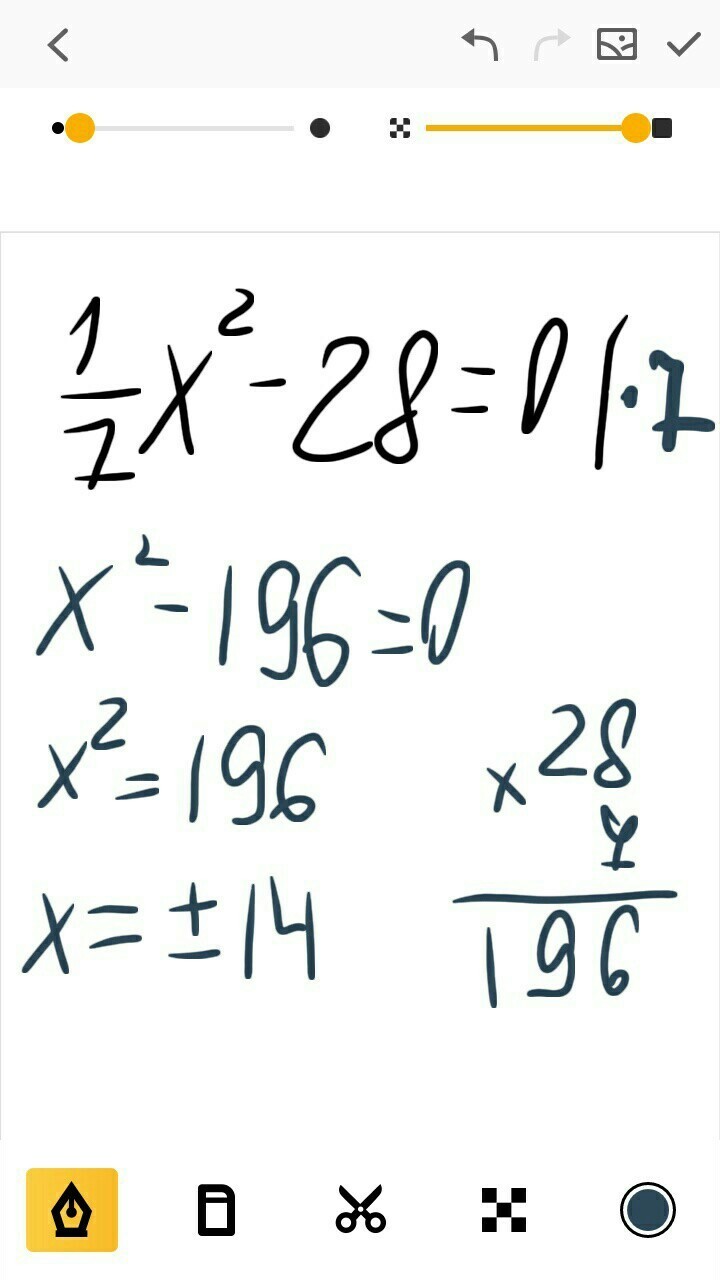 1/7 x² - 28 = 0 | · 7
x² - 196 = 0
x² = 196
x = ± 14
x 28
7
196